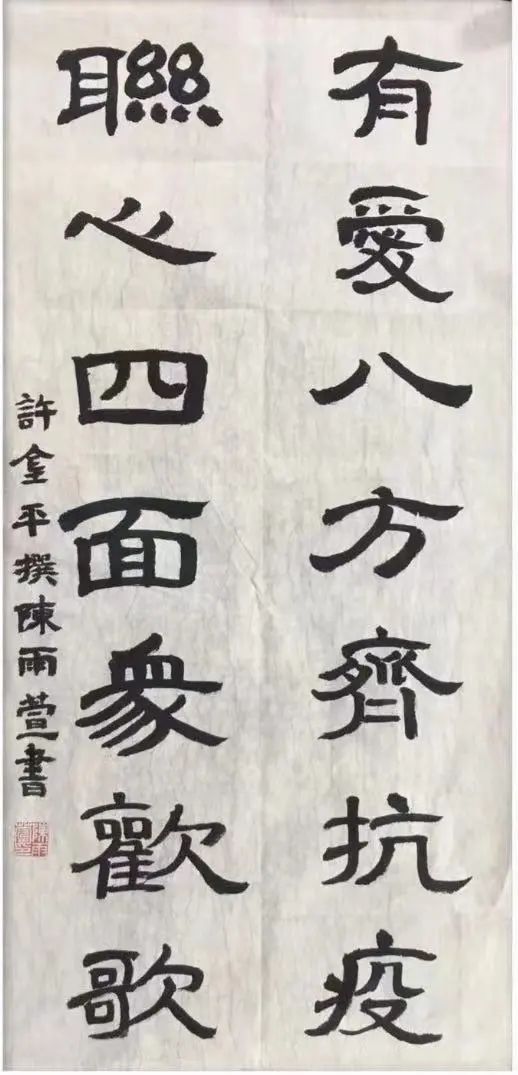 有愛八方齊抗疫
聯心四面衆歡歌
許金平撰陳雨萱書